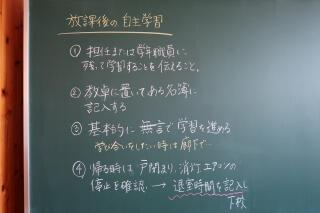 放課後の自主学習
① 担任または学年職員に
残って学習することを伝えること。
② 教卓に置いてある名簿に
記入する
③ 基本的に無言で学習を進める
学び合いをしたい時は廊下で…
④ 帰る時は戸閉まり、消灯、エアコンの
停止を確認 → 退室時間を記入し
下校